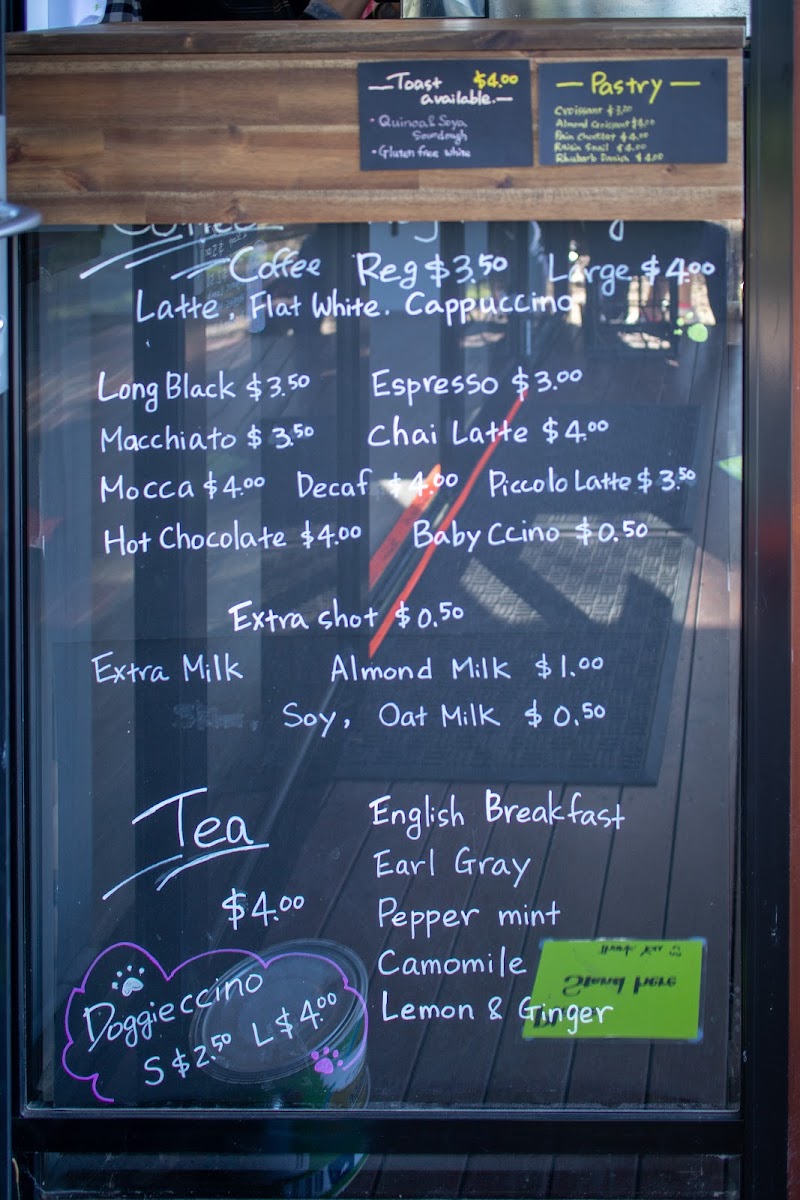 Toast $4.00
available.
• Quinoa & Soya
Sourdough
• Gluten free white
Pastry
Croissant $3.20
Almond Croissant $4.00
Pain Chocolat $4.00
Raisin Snail $4.00
Rhubarb Danish $4.00
Coffee Reg $3.50 Large $4.00
Latte, Flat White. Cappuccino
Long Black $3.50 Espresso $3.00
Macchiato $3.50 Chai Latte $4.00
Mocca $4.00 Decaf $4.00 Piccolo Latte $3.50
Hot Chocolate $4.00 Baby Ccino $0.50
Extra shot $0.50
Extra Milk Almond Milk $1.00
Soy, Oat Milk $0.50
Tea
$4.00
English Breakfast
Earl Gray
Pepper mint
Camomile
Lemon & Ginger
Doggieccino
S $2.50 L $4.00
Thank You
Stand here